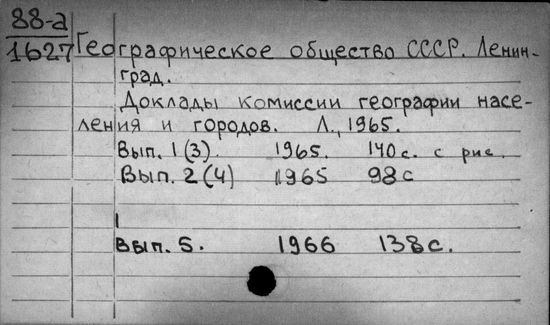 88-а
1627 Географическое общество СССР. Ленин-
град.
Доклады комиссии географии насе-
ления и городов. Л., 1965.
Вып. 1(3). 1965. 140 с. с рис.
Вып. 2(4) 1965 98 с
Вып. 5. 1966 138 с.